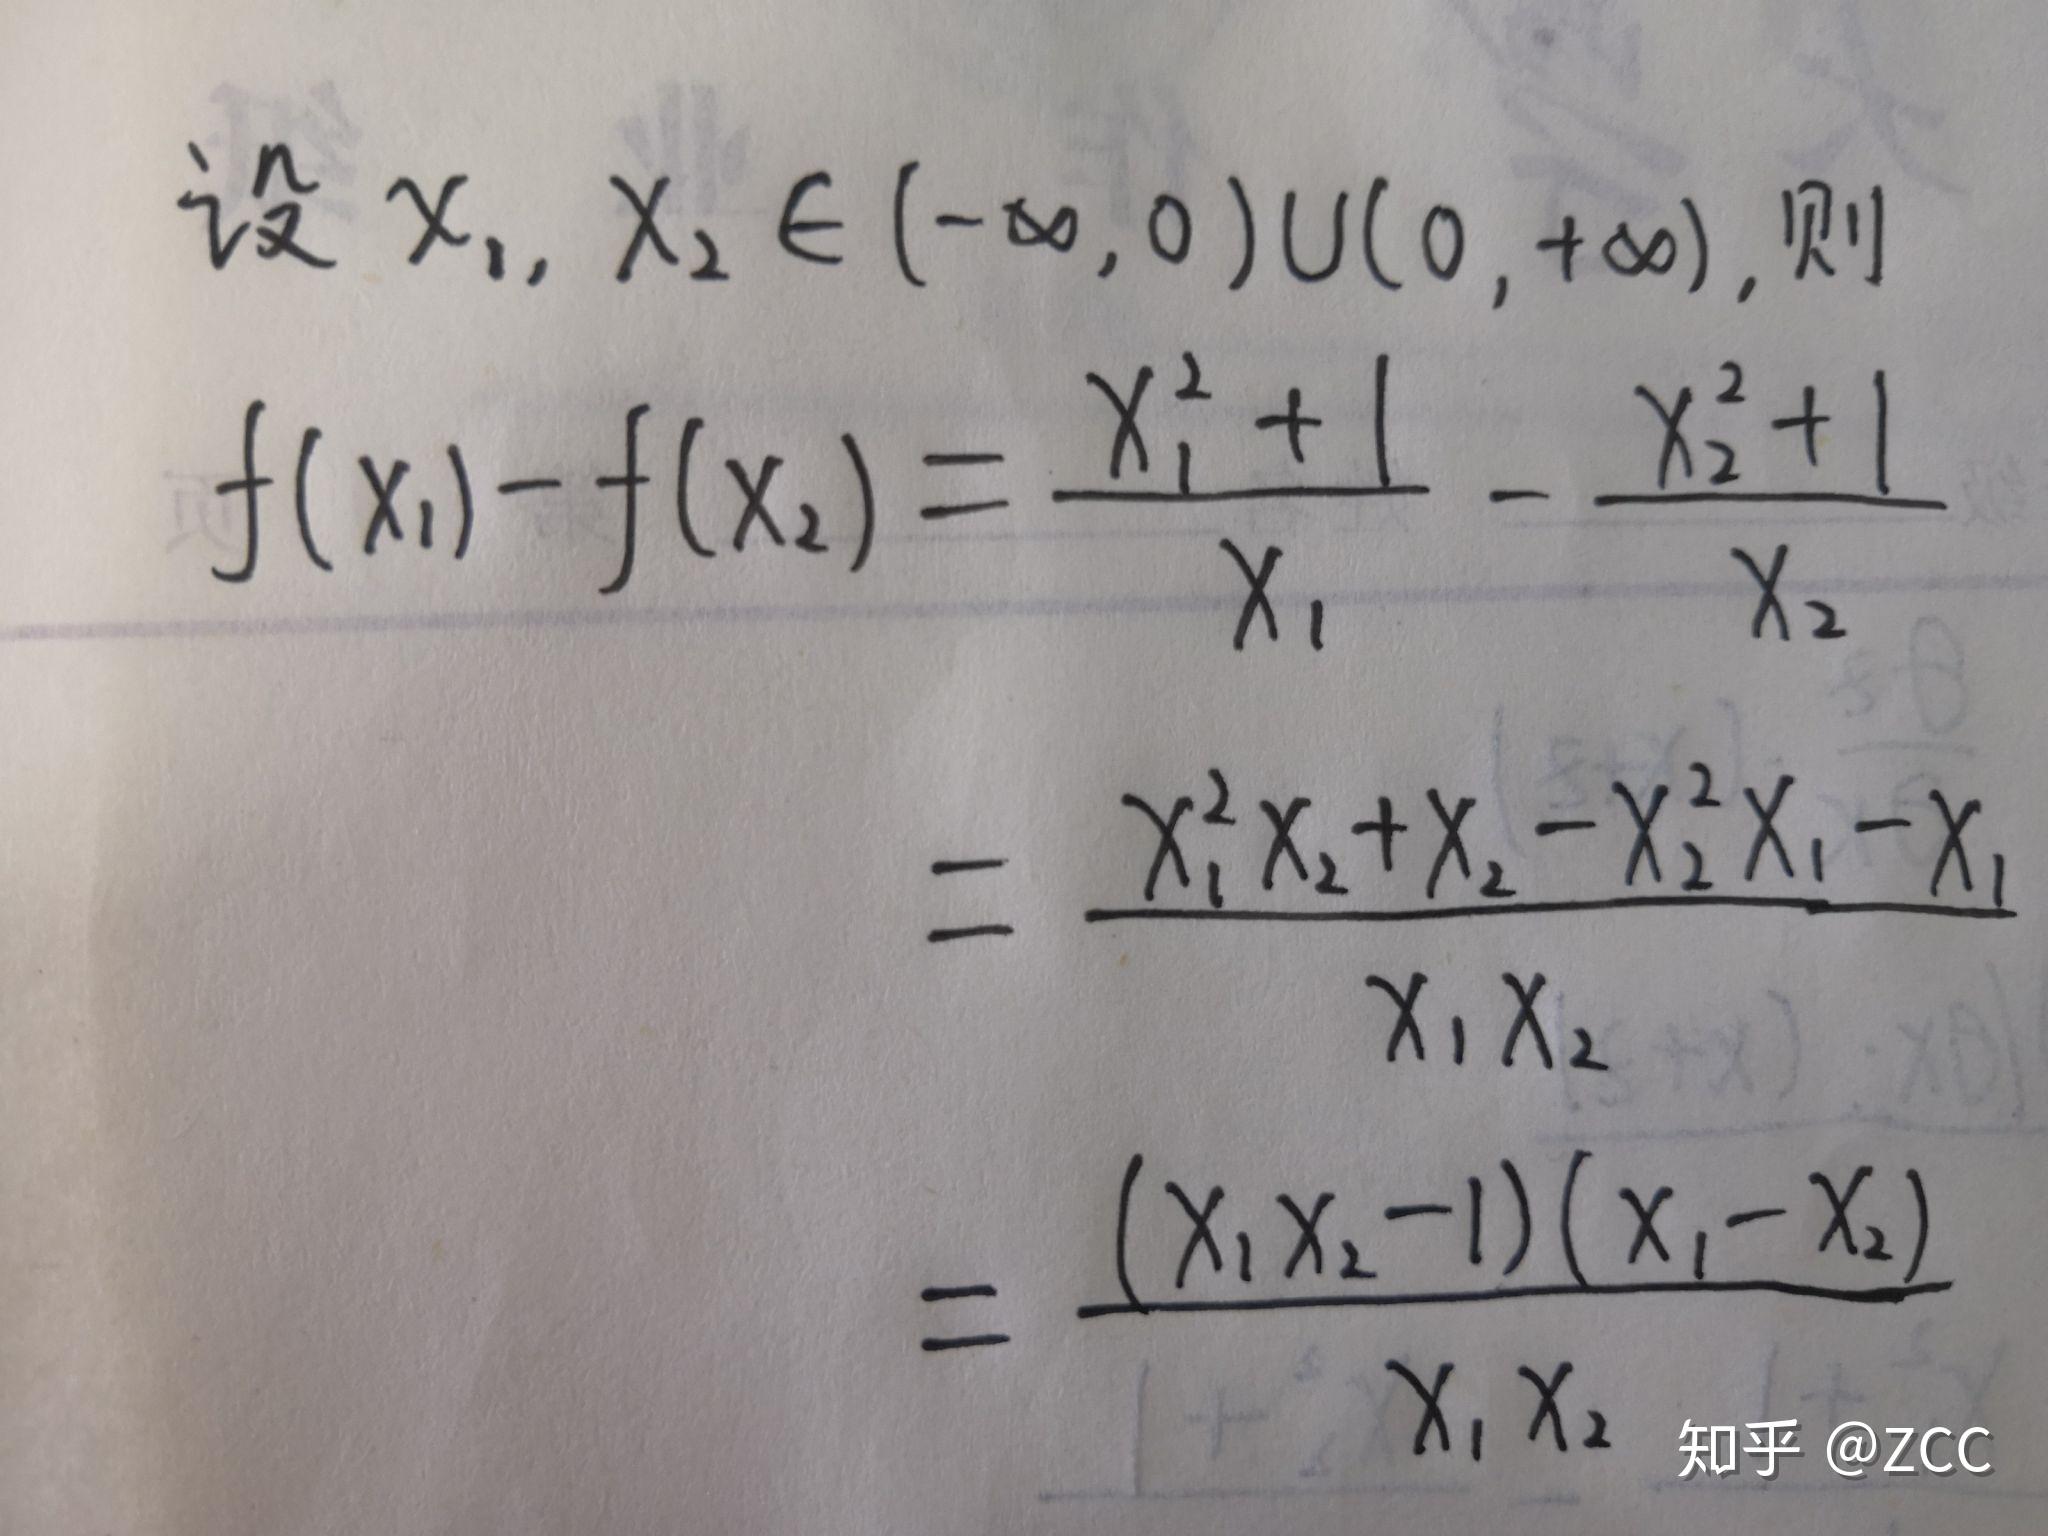 设 x₁, x₂ ∈ (-∞, 0) ∪ (0, +∞), 则
f(x₁) - f(x₂) = (x₁² + 1)/x₁ - (x₂² + 1)/x₂
= (x₁²x₂ + x₂ - x₂²x₁ - x₁)/(x₁x₂)
= (x₁x₂ - 1)(x₁ - x₂)/(x₁x₂)
知乎 @ZCC